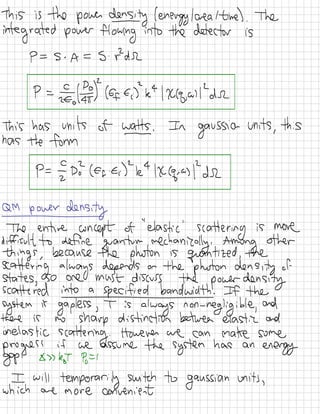 This is the power density (energy/area/time). The
integrated power flowing into the detector is
P = S · A = S · r²dΩ
P = c/2ε₀ (D₀/4π)² (ε_f · ε_i)² k⁴ |χ(q,ω)|² dΩ
This has units of watts. In gaussian units, this
has the form
P = c/2 D₀² (ε_f · ε_i)² k⁴ |χ(q,ω)|² dΩ
QM power density
The entire concept of "elastic" scattering is more
difficult to define quantum mechanically. Among other
things, because the photon is quantized, the
scattering always depends on the photon density of
states, so one must discuss the power density
scattered into a specified bandwidth. If the
system is gapless, T is always non-negligible, and
there is no sharp distinction between elastic and
inelastic scattering. However we can make some
progress if we assume the system has an energy
gap Δ >> k_BT P₀=1
I will temporarily switch to gaussian units,
which are more convenient